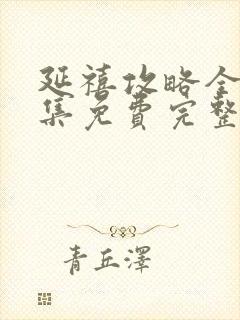 延禧攻略全
集免费完整
青丘澤